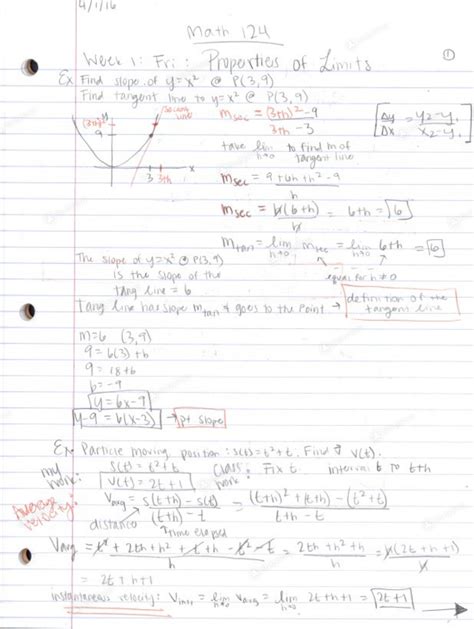 4/1/16
Math 124
Week 1: Fri: Properties of Limits ①
Ex Find slope of y=x² @ P(3,9)
Find tangent line to y=x² @ P(3,9)
secant line
(3+h)²
9
y
x
3 3+h
m_sec = (3+h)²-9 / 3+h-3
[Δy/Δx = y₂-y₁ / x₂-x₁]
take lim h→0 to find m of tangent line
m_sec = 9+6h+h²-9 / h
m_sec = h(6+h) / h = 6+h = 6
m_tan = lim h→0 m_sec = lim h→0 6+h = 6
equal for h≠0
The slope of y=x² @ P(3,9)
is the slope of the
tang line = 6
Tang line has slope m_tan & goes to the point → definition of the tangent line
m=6 (3,9)
9=6(3)+b
9=18+b
b=-9
y=6x-9
y-9=6(x-3) → pt slope
Ex Particle moving position: s(t)=t²+t. Find v(t).
my work: s(t)=t²+t
v(t)=2t+1
class work: Fix t. interval t to t+h
Average velocity:
v_avg = s(t+h)-s(t) / (t+h)-t = (t+h)²+(t+h)-(t²+t) / t+h-t
distance
time elapsed
v_avg = t²+2th+h²+t+h-t²-t / h = 2th+h²+h / h = h(2t+h+1) / h
= 2t+h+1
instantaneous velocity: v_inst = lim h→0 v_avg = lim h→0 2t+h+1 = 2t+1